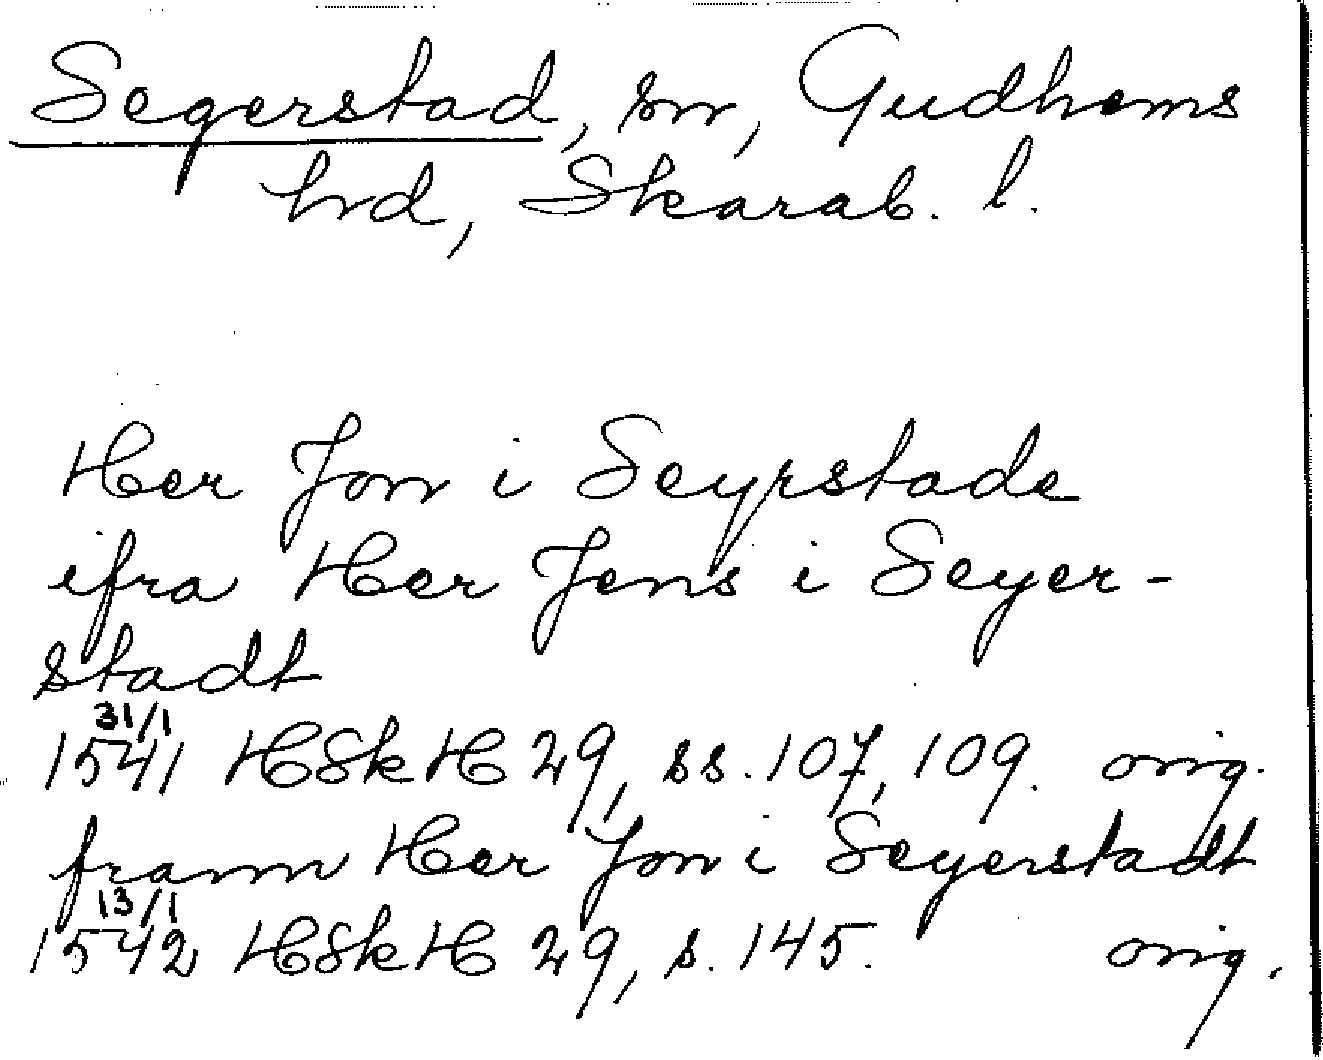 Segerstad, sn, Gudhems
hd, Skarab. l.
Her Jon i Seyrstade
ifra Her Jens i Seyer-
stadt
31/1
1541 HSkH 29, ss. 107, 109. orig.
framm Her Jon i Seyerstadt
13/1
1542 HSkH 29, s. 145. orig.